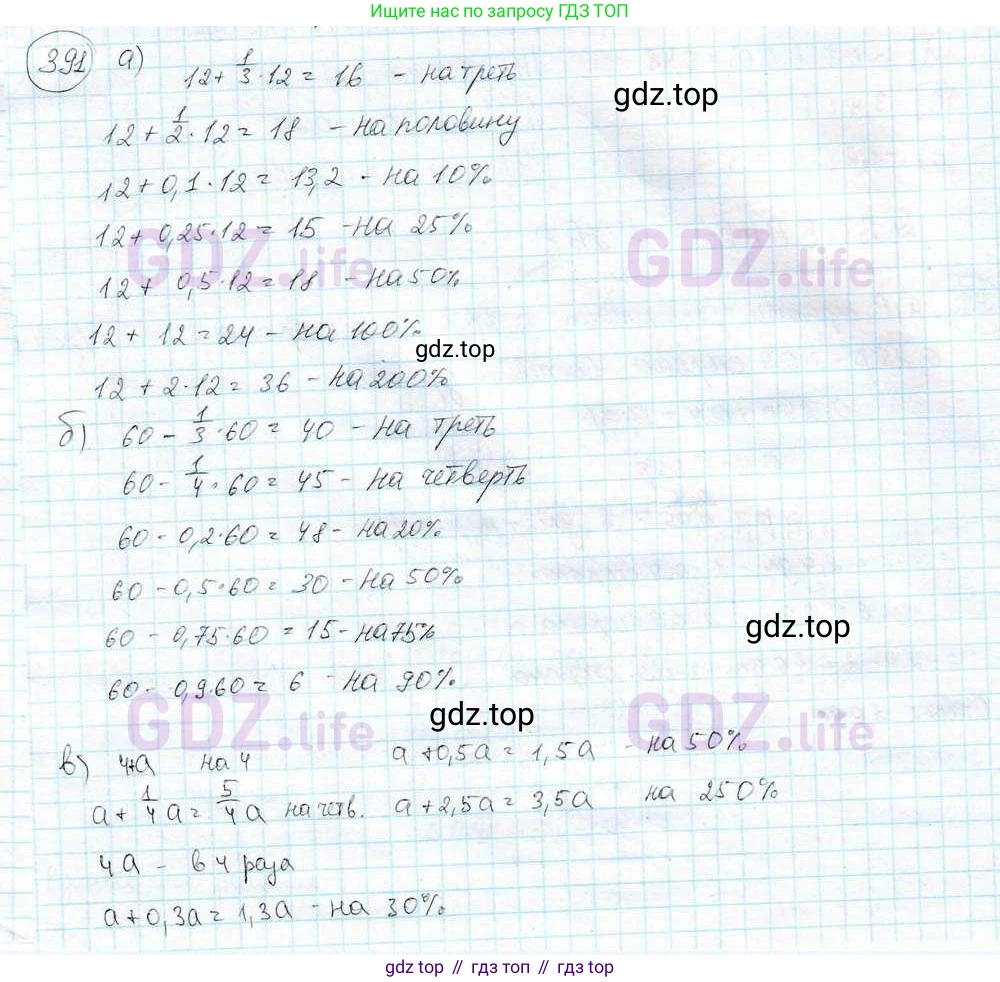 Ищите по запросу ГДЗ ТОП
391 а) 12 + 1/3 · 12 = 16 - на треть
gdz.top
12 + 1/2 · 12 = 18 - на половину
12 + 0,1 · 12 = 13,2 - на 10%
12 + 0,25 · 12 = 15 - на 25%
GDZ.life GDZ.life
12 + 0,5 · 12 = 18 - на 50%
12 + 12 = 24 - на 100%
gdz.top
12 + 2 · 12 = 36 - на 200%
б) 60 - 1/3 · 60 = 40 - на треть
60 - 1/4 · 60 = 45 - на четверть
60 - 0,2 · 60 = 48 - на 20%
60 - 0,5 · 60 = 30 - на 50%
60 - 0,75 · 60 = 15 - на 75%
gdz.top
60 - 0,9 · 60 = 6 - на 90%
gdz.top
GDZ.life GDZ.life
в) 4+a на 4 a + 0,5a = 1,5a - на 50%
a + 1/4 a = 5/4 a на четв. a + 2,5a = 3,5a на 250%
4a - в 4 раза
a + 0,3a = 1,3a - на 30%
gdz top // гдз топ // гдз top